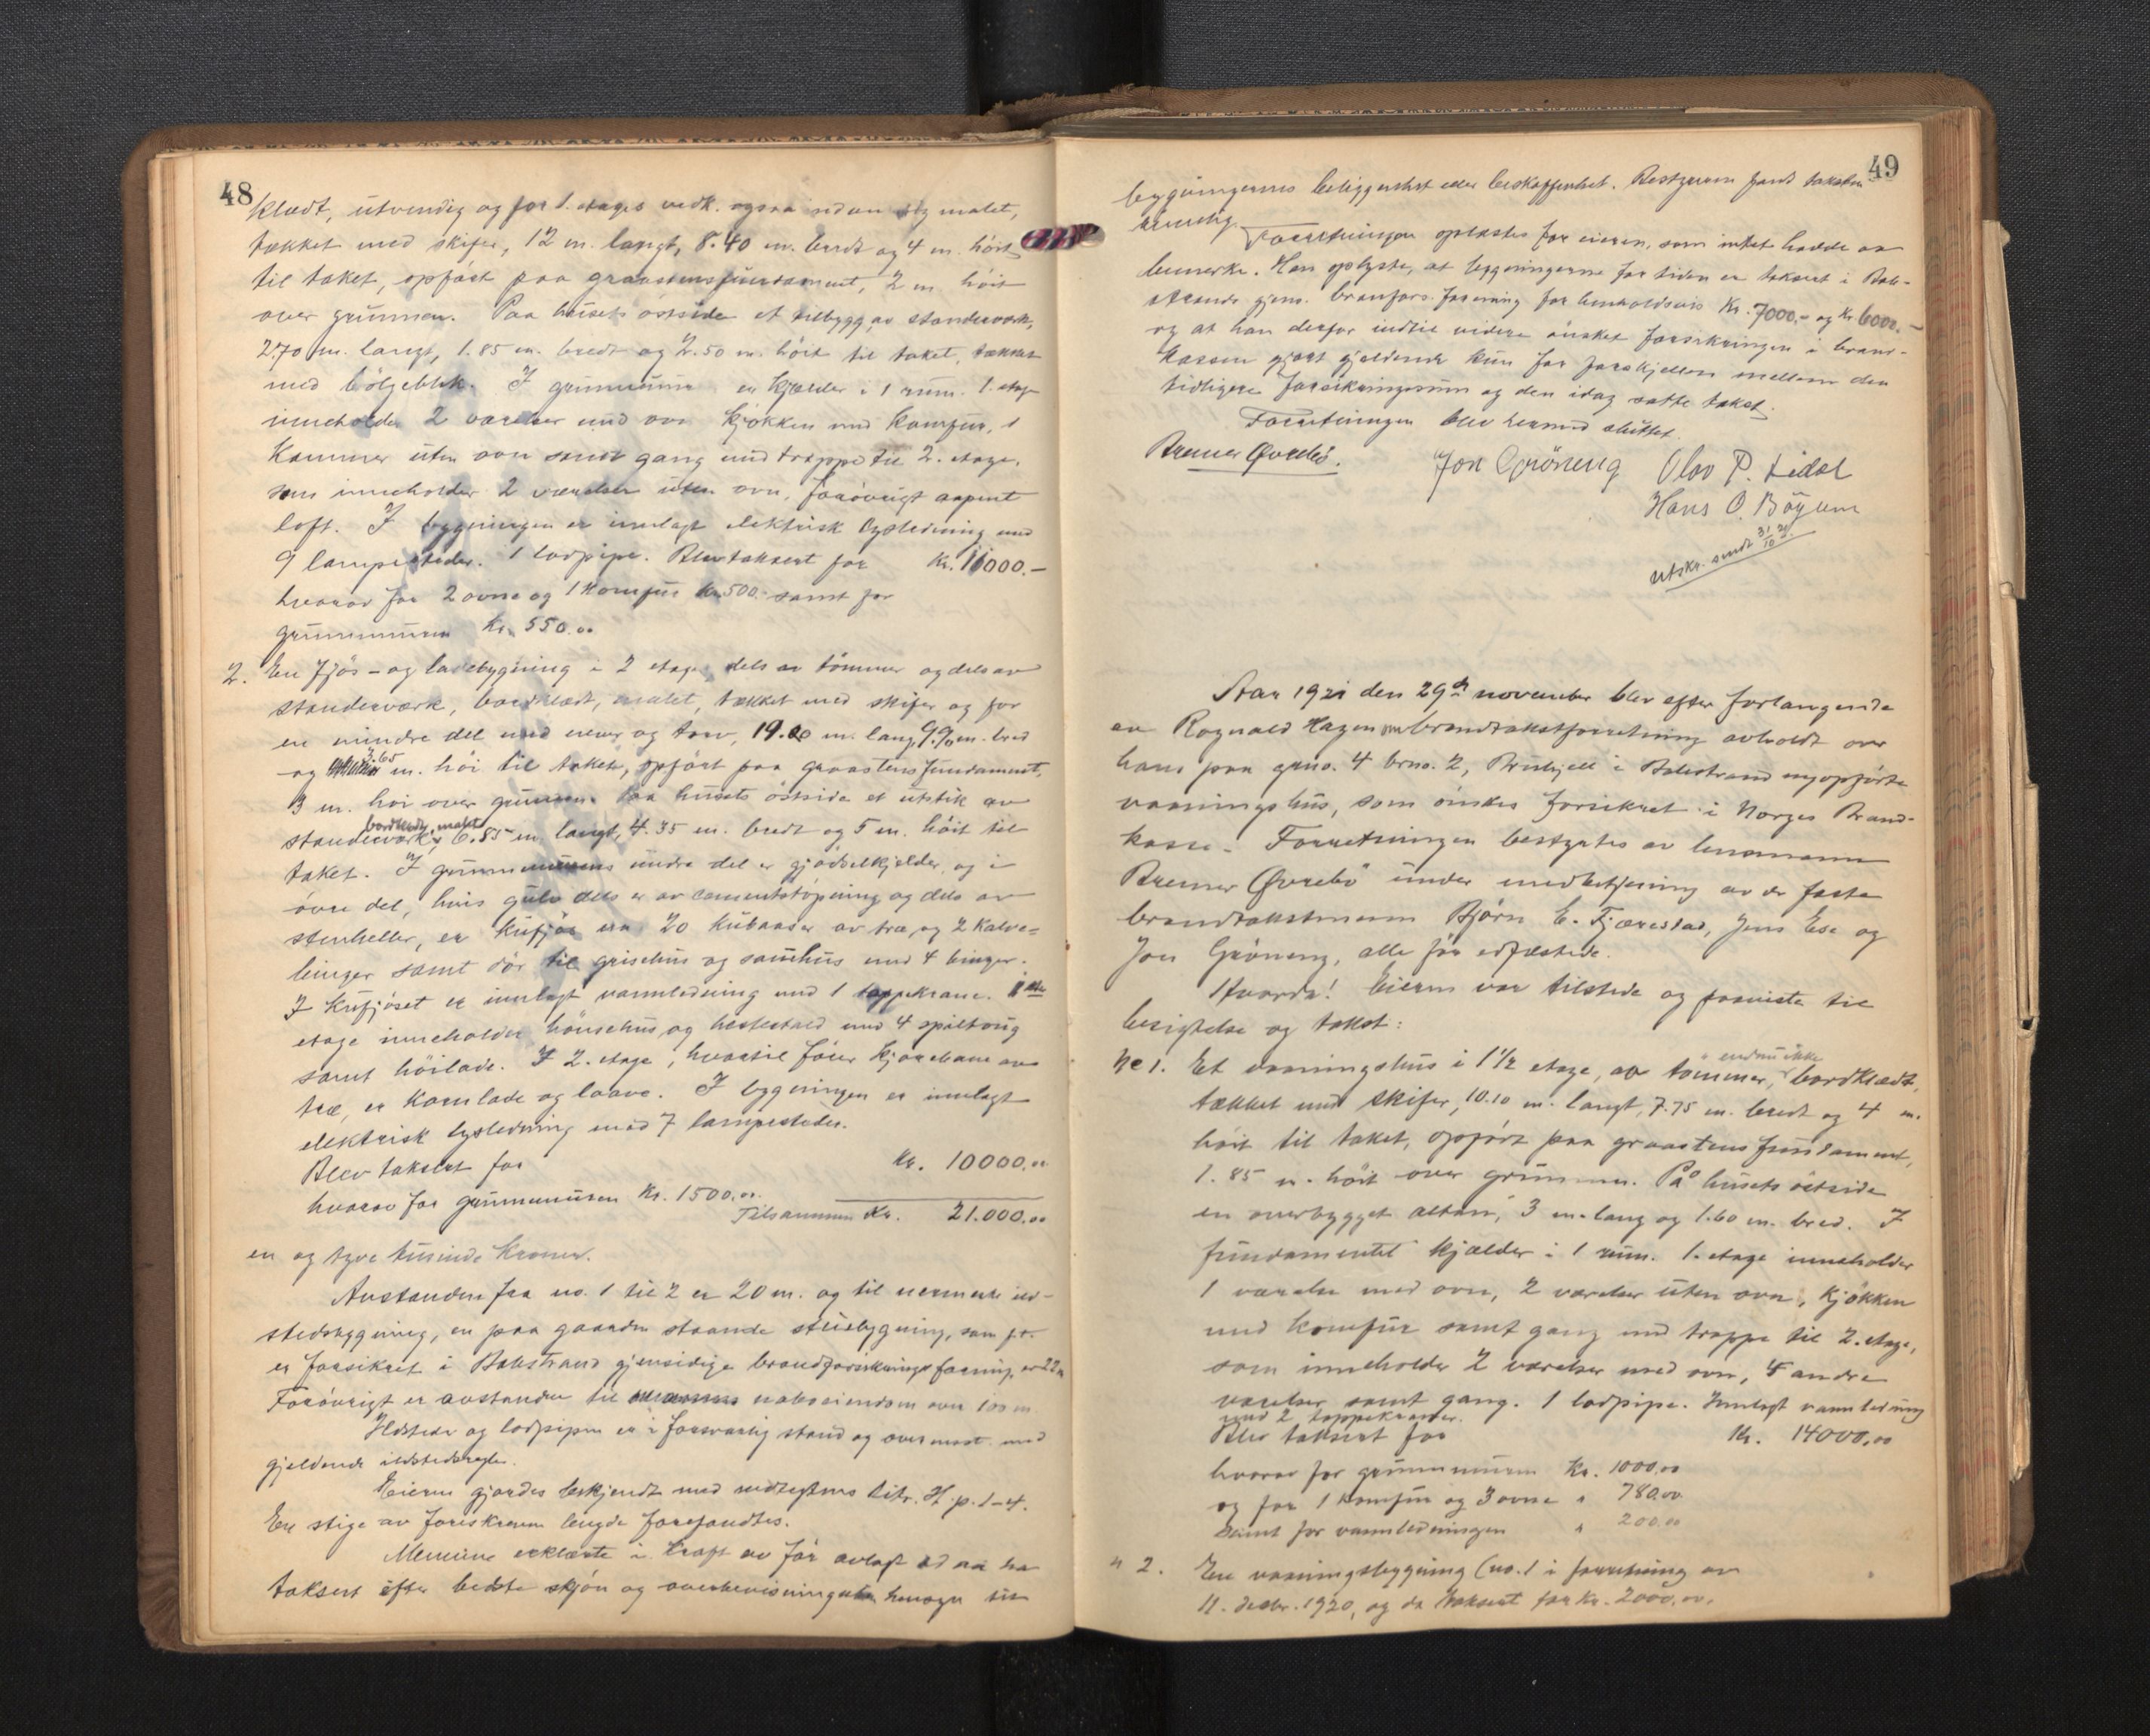 48
klædt, utvendig og for 1. etages vedk. ogsaa indvendig malet,
tækket med skifer, 12 m. langt, 8.40 m. bredt og 4 m. höit
til taket, opfört paa graastensfundament, 2 m. höit
over grunnen. Paa husets östside et tilbygg av standerværk,
2.70 m. langt, 1.85 m. bredt og 2.50 m. höit til taket, tækket
med bölgeblik. I grunnmuren er kjælder i 1 rum. 1. etage
inneholder 2 værelser med ovn kjökken med komfur, 1
kammer uten ovn samt gang med trappe til 2. etage,
som inneholder 2 værelser uten ovn, forövrigt aapent
loft. I bygningen er innlagt elektrisk lysledning med
9 lampesteder. 1 lodpipe. Blev taksert for Kr. 11000.-
hvorav for 2 ovne og 1 komfur Kr. 500.- samt for
grunnmuren Kr. 550.00
2. En fjös- og ladebygning i 2 etager, dels av tömmer og dels av
standerværk, bordklædt, malet, tækket med skifer og for
en mindre del med never og torv, 19.00 m. lang, 9.90 m. bred
og 3.65 m. höi til taket, opfört paa graastensfundament,
3 m. höi over grunnen. Paa husets östside et utstik av
standerværk, bordklædt, malet, 6.85 m. langt, 4.35 m. bredt og 5 m. höit til
taket. I grunnmurens undre del er gjödselkjelder, og i
övre del, hvis gulv dels er av cementstöpning og dels av
stenheller, er kufjös m 20 kubaaser av træ, og 2 kalve=
binger samt dör til grisehus og sauehus med 4 binger.
I kufjöset er innlagt vannledning med 1 tappekrane. 1ste
etage inneholder hönsehus og hestestald med 4 spiltoug
samt höilade. I 2. etage, hvortil förer kjörebane av
træ, er kornlade og laave. I bygningen er innlagt
elektrisk lysledning med 7 lampesteder.
Blev taksert for Kr. 10000.00
hvorav for grunnmuren Kr. 1500.00.
Tilsammen Kr. 21.000.00
en og tyve tusinde kroner.
Avstanden fra no. 1 til 2 er 20 m. og til nermeste ild-
stedsbygning, en paa gaarden staaende stuebygning, som pt.
er forsikret i Balestrand gjensidige brandforsikringsforening, er 22 m
Forövrigt er avstanden til naboeiendom over 100 m.
Ildsteder og lodpiper er i forsvarlig stand og overensst. med
gjeldende ildstedsregler.
Eieren gjordes bekjendt med vedtegtens litr. H. p. 1-4.
En stige av foreskreven lengde forefandtes.
Mennene erklærte i kraft av för avlagt ed aa ha
taksert efter bedste skjön og overbevisning uten hensyn til
49
bygningernes beliggenhet eller beskaffenhet. Bestyreren fandt taksten
rimelig.
Forretningen oplæstes for eieren, som intet hadde at
bemerke. Han oplyste, at bygningerne for tiden er taksert i Bale-
strands gjens. branfors. forening for henholdsvis Kr. 7000.- og Kr. 6000.-
og at han derfor indtil videre önsket forsikringen i brand-
kassen gjort gjeldende kun for forskjellen mellem den
tidligere forsikringssum og den idag satte takst.
Forretningen blev hermed sluttet.
Bremer Øvrebö.
Jon Gröneng
Olav P. Lidal
Hans O. Böyum
Utskr. sendt 31/10 21.
Aar 1921 den 29de november blev efter forlangende
av Ragnvald Hagen brandtakstforretning avholdt over
hans paa grno. 4 brno. 2, i Balestrand nyopförte
vaaningshus, som önskes forsikret i Norges Brand-
kasse. Forretningen bestyrtes av lensmann
Bremer Øvrebö under medbetjening av de faste
brandtakstmenn Björn E. Fjærestad, Jens Ese og
Jon Gröneng, alle för edfæstede.
Hvorda! Eieren var tilstede og paaviste til
besigtelse og takst:
No 1. Et vaaningshus i 1 1/2 etage, av tømmer, endnu ikke bordklædt,
tækket med skifer, 10.10 m. langt, 7.75 m. bredt og 4 m.
höit til taket, opfört paa graastensfundament,
1.85 m. höit over grunnen. På husets östside
en overbygget altan, 3 m. lang og 1.60 m. bred. I
fundamentet kjælder i 1 rum. 1. etage inneholder
1 værelse med ovn, 2 værelser uten ovn, kjökken
med komfur samt gang med trappe til 2. etage,
som inneholder 2 værelser med ovn, 4 andre
værelser samt gang. 1 lodpipe. Innlagt vannledning
med 2 tappekraner.
Blev taksert for Kr. 14000.00
hvorav for grunnmuren Kr. 1000.00
og for 1 komfur og 3 ovne " 780.00
samt for vannledningen " 200.00
" 2. En vaaningsbygning (no. 1 i forretning av
11. desbr. 1920, og da taksert for Kr. 2000.00.